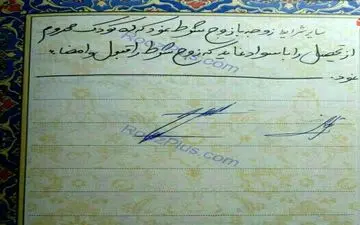 سایر شرایط زوجه با زوج شرط نمود که کودک محروم
از تحصیل را با سواد نماید که زوج شرط را قبول و امضاء
نمود.
RoozPlus.com
RoozPlus.com